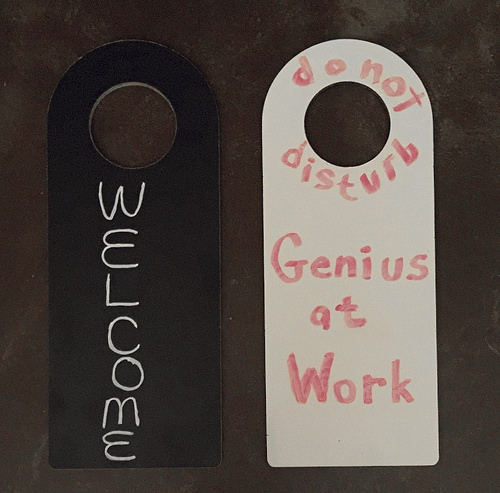 WELCOME
do not
disturb
Genius
at
Work